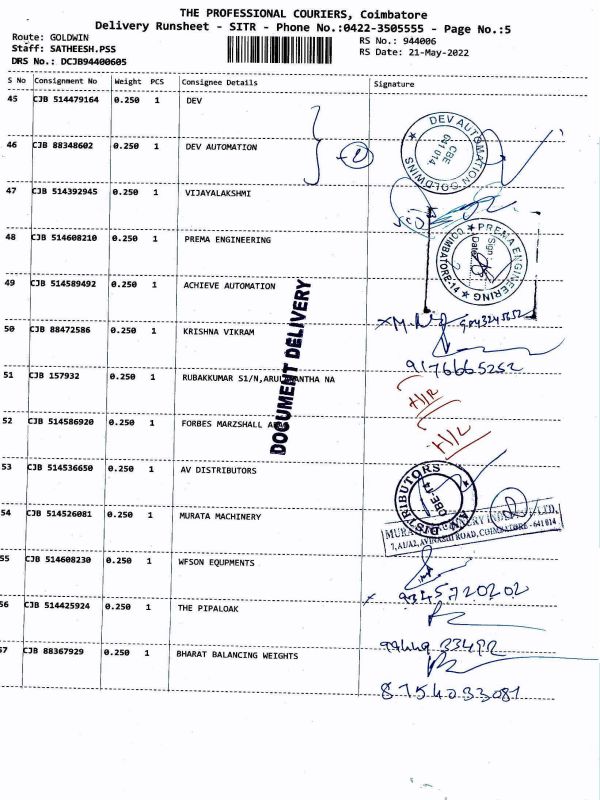 THE PROFESSIONAL COURIERS, Coimbatore
Delivery Runsheet - SITR - Phone No.:0422-3505555 - Page No.:5
Route: GOLDWIN
RS No.: 944006
Staff: SATHEESH.PSS
RS Date: 21-May-2022
DRS No.: DCJB94400605
S No Consignment No Weight PCS Consignee Details Signature
45 CJB 514479164 0.250 1 DEV
46 CJB 88348602 0.250 1 DEV AUTOMATION
DEV AUTOMATION GOLDWINS
CBE
641 014
47 CJB 514392945 0.250 1 VIJAYALAKSHMI
48 CJB 514608210 0.250 1 PREMA ENGINEERING
PREMA ENGINEERING
COIMBATORE-14
Sign
Date
49 CJB 514589492 0.250 1 ACHIEVE AUTOMATION
DOCUMENT DELIVERY
50 CJB 88472586 0.250 1 KRISHNA VIKRAM
9176665252
51 CJB 157932 0.250 1 RUBAKKUMAR S1/N, NA
52 CJB 514586920 0.250 1 FORBES MARZSHALL
53 CJB 514536650 0.250 1 AV DISTRIBUTORS
AV DISTRIBUTORS
CBE-14
54 CJB 514526081 0.250 1 MURATA MACHINERY
AVINASHI ROAD, COIMBATORE - 641 014
55 CJB 514608230 0.250 1 WFSON EQUPMENTS
9345720202
56 CJB 514425924 0.250 1 THE PIPALOAK
57 CJB 88367929 0.250 1 BHARAT BALANCING WEIGHTS
8754033081